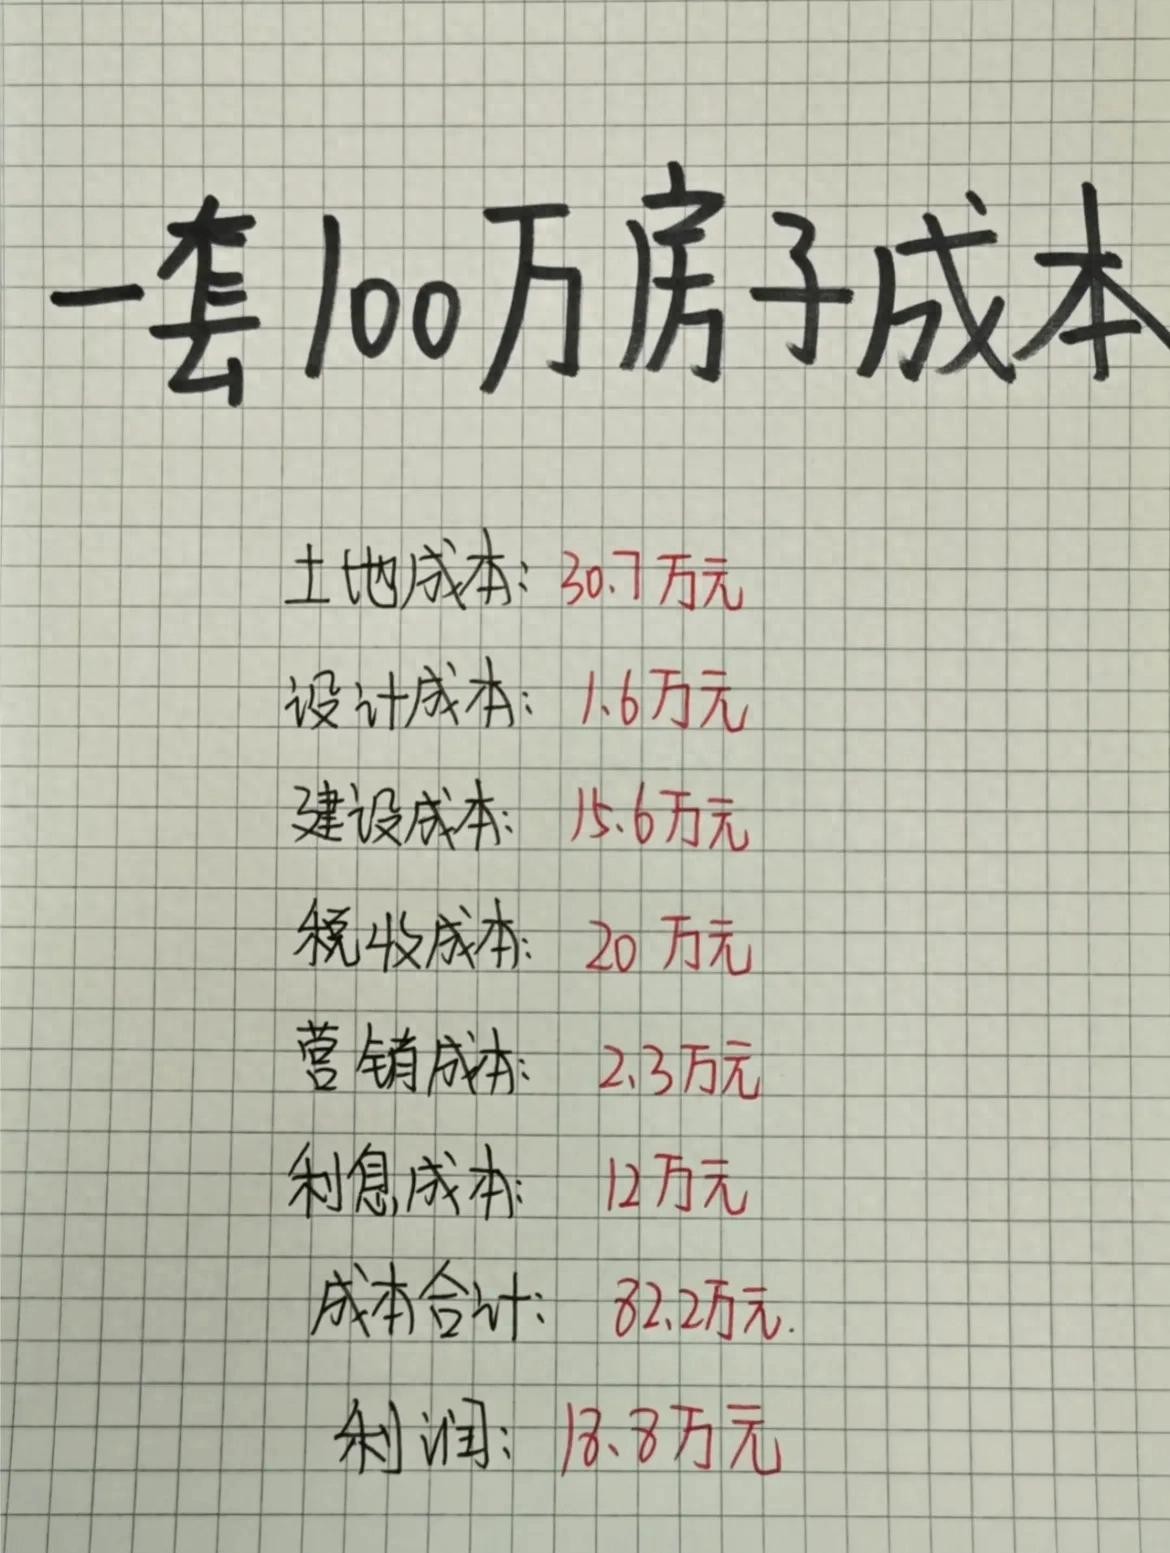 一套100万房子成本
土地成本：30.7万元
设计成本：1.6万元
建设成本：15.6万元
税收成本：20万元
营销成本：2.3万元
利息成本：12万元
成本合计：82.2万元.
利润：18.8万元